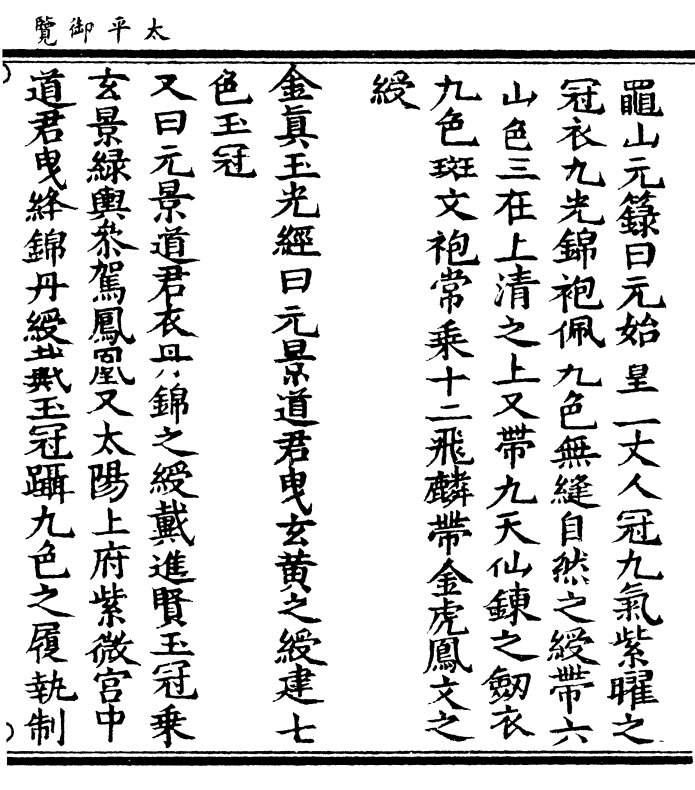 太平御覽
黽山元籙曰元始皇一丈人冠九氣紫曜之
冠衣九光錦袍佩九色無縫自然之綬帶六
山色三在上清之上又帶九天仙錬之劒衣
九色斑文袍常乗十二飛麟帶金虎鳳文之
綬
金真玉光經曰元景道君曳玄黄之綬建七
色玉冠
又曰元景道君衣丹錦之綬戴進賢玉冠乗
玄景緑輿叅駕鳳凰又太陽上府紫微宫中
道君曳絳錦丹綬戴玉冠躡九色之履執制